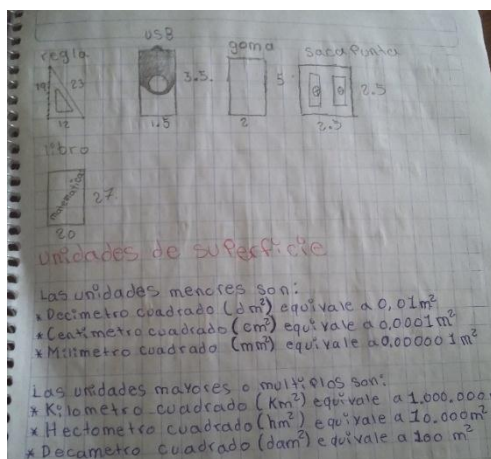 regla
USB
goma
saca punta
19
23
12
3.5.
1.5
5
2
2.5
2.5
libro
matematica
27
20
unidades de superficie
Las unidades menores son:
* Decimetro cuadrado (dm²) equivale a 0,01m²
* Centimetro cuadrado (cm²) equivale a 0,0001m²
* Milimetro cuadrado (mm²) equivale a 0.000001m²
Las unidades mayores o multiplos son:
* Kilometro cuadrado (Km²) equivale a 1.000.000
* Hectometro cuadrado (hm²) equivale a 10.000m²
* Decametro cuadrado (dam²) equivale a 100 m²